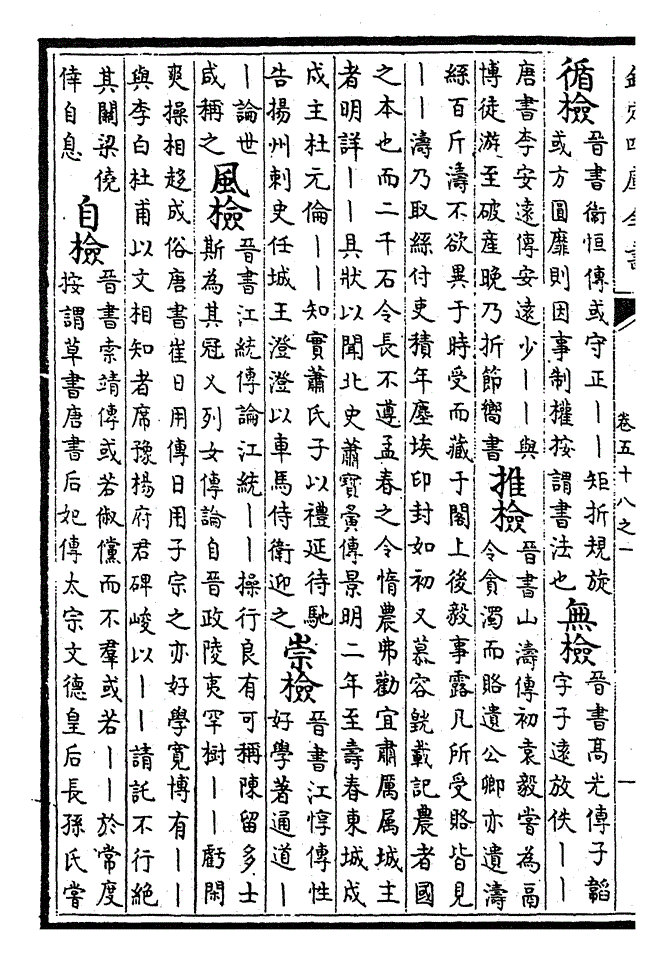 欽定四庫全書
卷五十八之一
一
循檢
晉書衛恒傳或守正丨丨矩折規旋
或方圓靡則因事制權按謂書法也
無檢
晉書髙光傳子韜
字子遠放佚丨丨
唐書李安遠傳安遠少丨丨與
博徒游至破産晚乃折節嚮書
推檢
晉書山濤傳初袁毅嘗為鬲
令貪濁而賂遺公卿亦遺濤
絲百斤濤不欲異于時受而藏于閣上後毅事露凡所受賂皆見
丨丨濤乃取絲付吏積年塵埃印封如初又慕容皝載記農者國
之本也而二千石令長不遵孟春之令惰農弗勸宜肅厲属城主
者明詳丨丨具狀以聞北史蕭寶夤傳景明二年至壽春東城戍
戍主杜元倫丨丨知實蕭氏子以禮延待馳
告揚州刺史任城王澄澄以車馬侍衛迎之
崇檢
晉書江惇傳性
好學著通道丨
丨論世
咸稱之
風檢
晉書江統傳論江統丨丨操行良有可稱陳留多士
斯為其冠又列女傳論自晉政陵夷罕樹丨丨虧閑
爽操相趍成俗唐書崔日用傳日用子宗之亦好學寬博有丨丨
與李白杜甫以文相知者席豫楊府君碑峻以丨丨請託不行絕
其關梁僥
倖自息
自檢
晉書索靖傳或若俶儻而不羣或若丨丨於常度
按謂草書唐書后妃傳太宗文德皇后長孫氏嘗